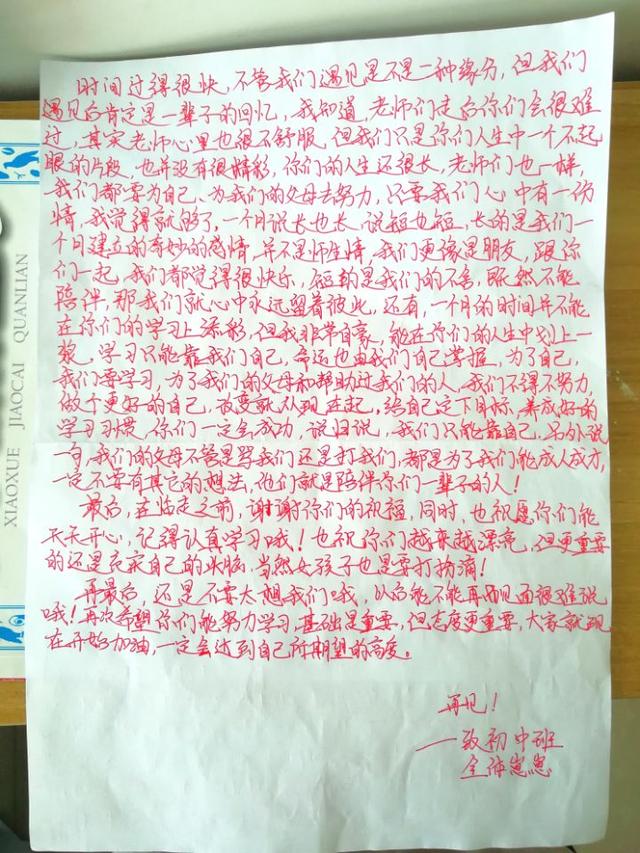 时间过得很快，不管我们遇见是不是一种缘分，但我们
遇见后肯定是一辈子的回忆，我知道，老师们走后你们会很难
过，其实老师心里也很不舒服，但我们只是你们人生中一个不起
眼的片段，也并没有很精彩，你们的人生还很长，老师们也一样，
我们都要为自己、为我们的父母去努力，只要我们心中有一份
情，我觉得就够了，一个月说长也长，说短也短，长的是我们一
个月建立的奇妙的感情，并不是师生情，我们更像是朋友，跟你
们一起，我们都觉得很快乐，短的是我们的不舍，既然不能
陪伴，那我们就心中永远留着彼此，还有，一个月的时间并不能
在你们的学习上添彩，但我非常自豪，能在你们的人生中划上一
桨，学习只能靠我们自己，命运也由我们自己掌握，为了自己，
我们要学习，为了我们的父母和帮助过我们的人，我们不得不努力，
做个更好的自己，改变就从现在起，给自己定下目标，养成好的
学习习惯，你们一定会成功，说归说，我们只能靠自己，另外说
一句，我们的父母不管是骂我们还是打我们，都是为了我们能成人成才，
一定不要有其它的想法，他们就是陪伴你们一辈子的人！
最后，在临走之前，谢谢你们的祝福，同时，也祝愿你们能
天天开心，记得认真学习哦！也祝你们越来越漂亮，但更重要
的还是充实自己的头脑，当然女孩子也是要打扮滴！
再最后，还是不要太想我们哦，以后能不能再西见面很难说
哦！再次希望你们能努力学习，基础是重要，但态度更重要，大家就现
在开始加油，一定会达到自己所期望的高度。
再见！
一致初中班
全体崽崽
XIAOXUE JIAOCAI QUANLIAN